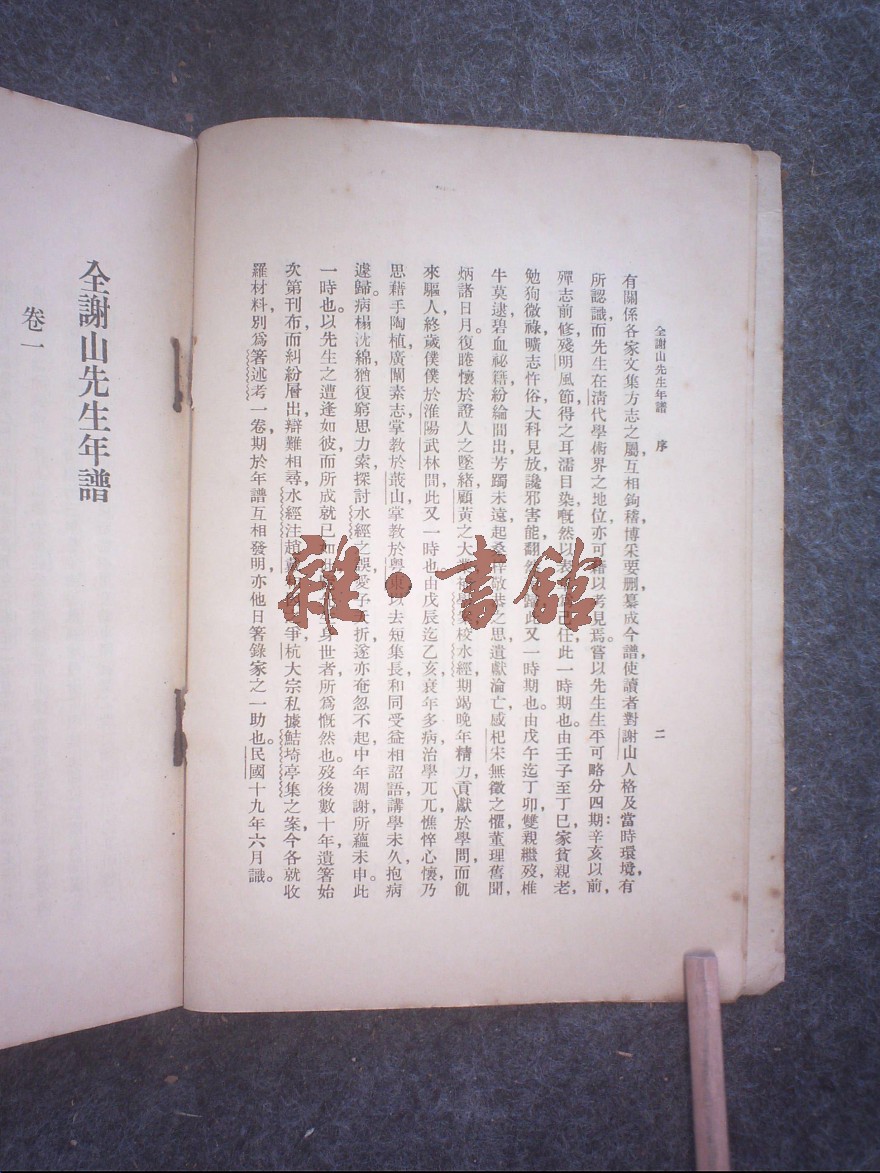 全謝山先生年譜 序 二
有關係各家文集方志之屬,互相鉤稽,博采要刪,纂成今譜,使讀者對謝山人格及當時環境,有
所認識,而先生在清代學術界之地位,亦可藉以考見焉。嘗以先生生平可略分四期:辛亥以前,
殫志前修,殘明風節,得之耳濡目染,慨然以 己任,此一時期也。由壬子至丁巳,家貧親老,
勉狥微祿,曠志忤俗,大科見放,讒邪害能,翻然 此又一時期也。由戊午迄丁卯,雙親繼歿,椎
牛莫逮,碧血祕籍,紛綸間出,芳躅未遠,起桑梓敬恭之思,遺獻淪亡,感杞宋無徵之懼,董理舊聞,
炳諸日月。復睠懷於證人之墜緒,顧黃之大 校水經,期竭晚年精力,貢獻於學問,而飢
來驅人,終歲僕僕於淮陽武林間,此又一時也。由戊辰迄乙亥,衰年多病,治學兀兀,憔悴心懷,乃
思藉手陶植,廣闡素志,掌教於蕺山,掌教於粵東,以去短集長,和同受益相詔語,講學未久,抱病
遽歸,病榻沈綿,猶復窮思力索,探討水經之誤,愛子夭折,遂亦奄忽不起,中年凋謝,所蘊未申。此
一時也。以先生之遭逢如彼,而所成就已如 身世者所爲慨然也。歿後數十年,遺箸始
次第刊布,而糾紛層出,辯難相尋,水經注趙戴 爭,杭大宗私據鮚埼亭集之案,今各就收
羅材料,別爲箸述考一卷,期於年譜互相發明,亦他日箸錄家之一助也。民國十九年六月識。
全謝山先生年譜
卷一
雜·書館